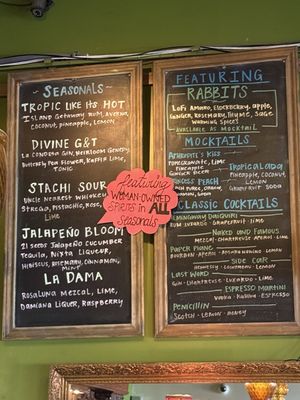 SEASONALS
TROPIC LIKE ITS HOT
ISLAND GETAWAY RUM, AVERNA,
COCONUT, PINEAPPLE, LEMON
DIVINE G&T
LA CONDESA GIN, HEIRLOOM GENEPY
BUTTERFLY PEA FLOWER, KAFFIR LIME,
TONIC
STACHI SOUR
UNCLE NEAREST WHISKEY
STREGA, PISTACHIO, ROSE
LIME
JALAPEÑO BLOOM
21 SEEDS JALAPEÑO CUCUMBER
TEQUILA, NIXTA LIQUEUR,
HIBISCUS, ROSEMARY, CINNAMON,
MINT
LA DAMA
ROSALUNA MEZCAL, LIME,
DAMIANA LIQUER, RASPBERRY
featuring
WOMAN-OWNED
SPIRITS IN ALL
SEASONALS
FEATURING
RABBITS
LOFI AMARO, APPLE,
GINGER, ROSEMARY, THYME, SAGE
SPICES
AVAILABLE AS MOCKTAIL
MOCKTAILS
APHRODITE'S KISS
POMEGRANATE, LIME
PINEAPPLE
GINGER BEER
PRINCESS PEACH
GRAPE,
LEMON, SODA
TROPICOLADA
PINEAPPLE, COCONUT
LEMON
GRAPEFRUIT SODA
CLASSIC COCKTAILS
HEMINGWAY DAIQUIRI
RUM · LUXARDO · GRAPEFRUIT · LIME
NAKED AND FAMOUS
MEZCAL · CHARTREUSE · APEROL · LIME
PAPER PLANE
BOURBON · APEROL · AMARO NONINO · LEMON
SIDE CAR
HENNESSY · COINTREAU · LEMON
LAST WORD
GIN · CHARTREUSE · LUXARDO · LIME
ESPRESSO MARTINI
VODKA · KAHLUA · ESPRESSO
PENICILLIN
SCOTCH · LEMON · HONEY